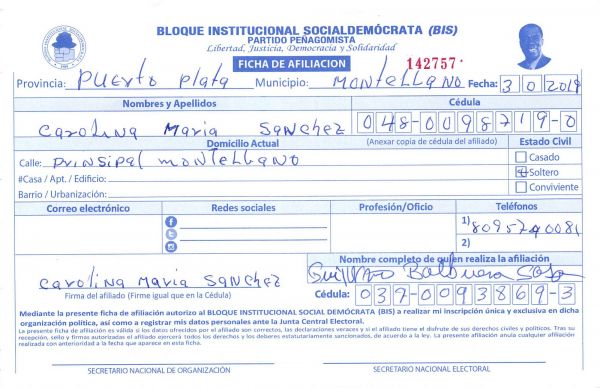 BLOQUE INSTITUCIONAL SOCIALDEMÓCRATA (BIS)
PARTIDO PEÑAGOMISTA
Libertad, Justicia, Democracia y Solidaridad
FICHA DE AFILIACION
142757
Provincia: Puerto Plata Municipio: Montellano Fecha: 3 0 2019
Nombres y Apellidos Cédula
Carolina Maria Sanchez 048-0098719-0
Domicilio Actual (Anexar copia de cédula del afiliado) Estado Civil
Calle: Prinsipal Montellano Casado
#Casa / Apt. / Edificio: Soltero
Barrio / Urbanización: Conviviente
Correo electrónico Redes sociales Profesión/Oficio Teléfonos
1) 8095740081
2)
Nombre completo de quien realiza la afiliación
Carolina Maria Sanchez Guillermo Balbuena Sosa
Firma del afiliado (Firme igual que en la Cédula) Cédula: 037-0093869-3
Mediante la presente ficha de afiliación autorizo al BLOQUE INSTITUCIONAL SOCIAL DEMÓCRATA (BIS) a realizar mi inscripción única y exclusiva en dicha
organización política, así como a registrar mis datos personales ante la Junta Central Electoral.
La presente ficha de afiliación es válida si los datos ofrecidos por el afiliado son correctos, las declaraciones veraces y si el afiliado tiene el disfrute de sus derechos civiles y políticos. Tras su
recepción, sello y firmas autorizadas el afiliado ejercerá todos los derechos y los deberes estatutariamente sancionados, de acuerdo a la ley. La presente afiliación anula cualquier afiliación
realizada con anterioridad a la fecha que aparece en esta ficha.
SECRETARIO NACIONAL DE ORGANIZACIÓN SECRETARIO NACIONAL ELECTORAL